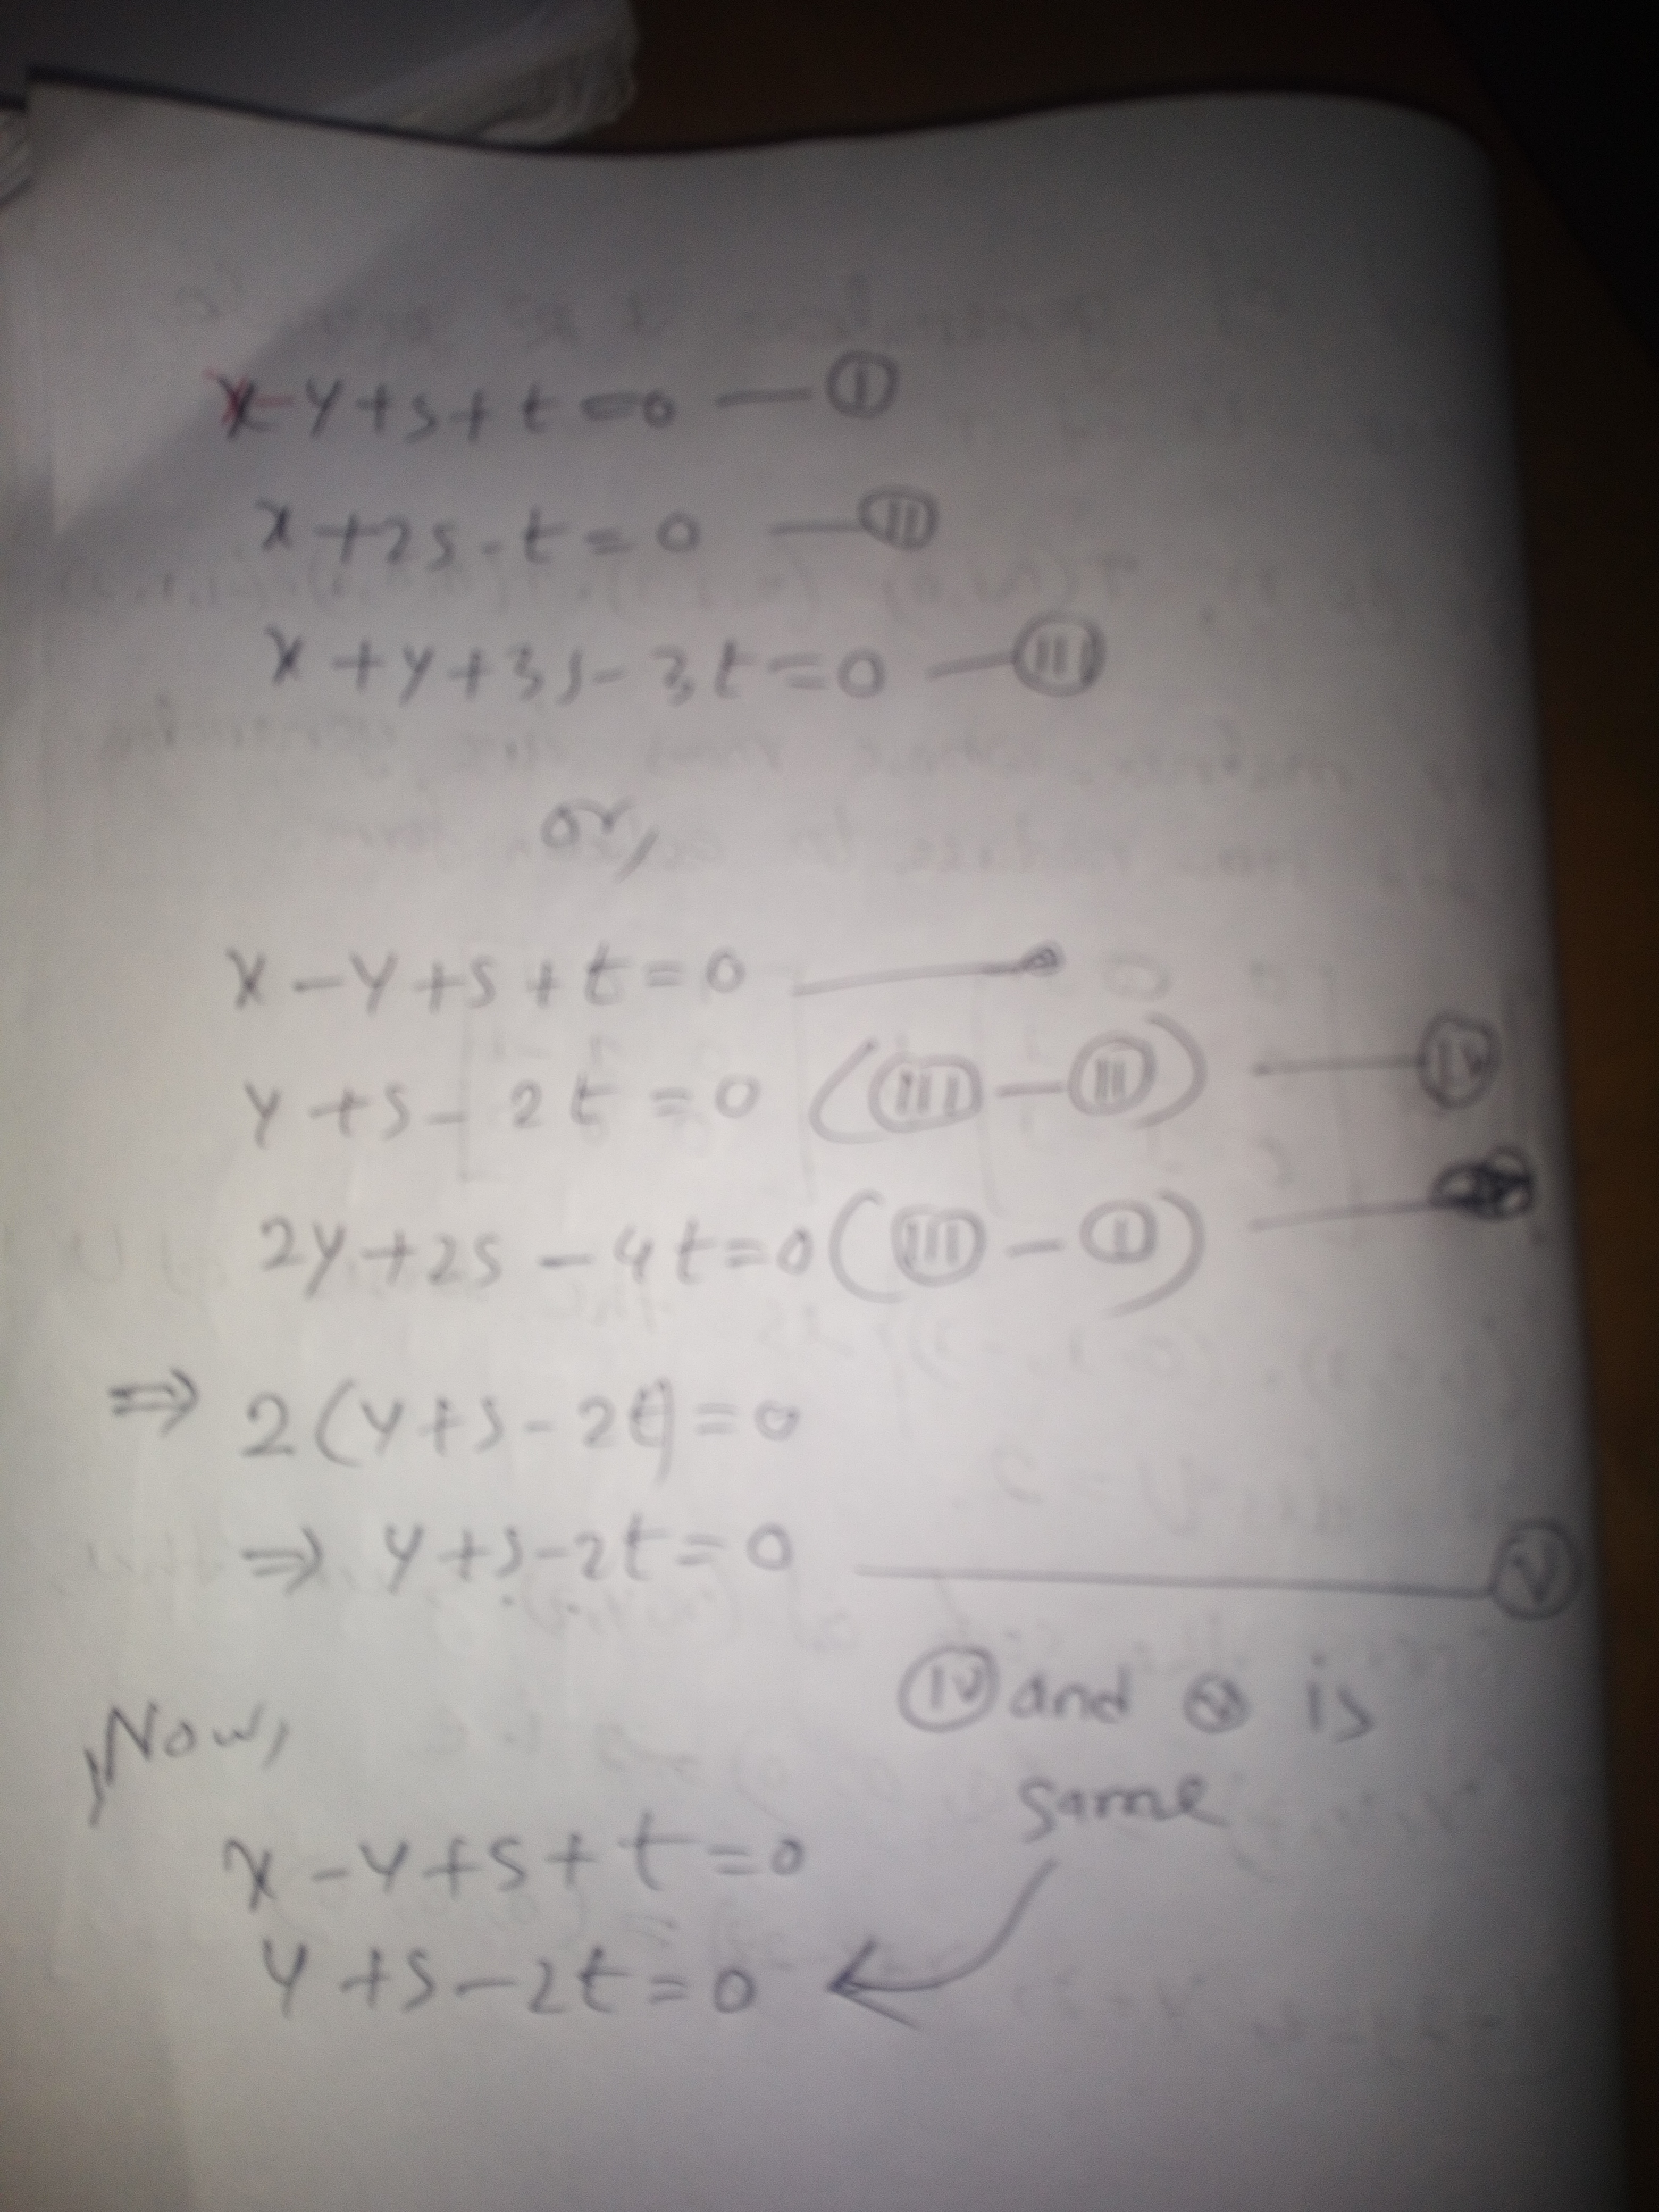 x-y+s+t=0 — Ⓘ
x+2s-t=0 — Ⅱ
x+y+3s-3t=0 — Ⅲ
or,
x-y+s+t=0
y+s-2t=0 (Ⅲ-Ⅱ) — Ⅳ
2y+2s-4t=0 (Ⅲ-Ⓘ)
⇒ 2(y+s-2t)=0
⇒ y+s-2t=0 — Ⓥ
Ⅳ and Ⓥ is
same
Now,
x-y+s+t=0
y+s-2t=0